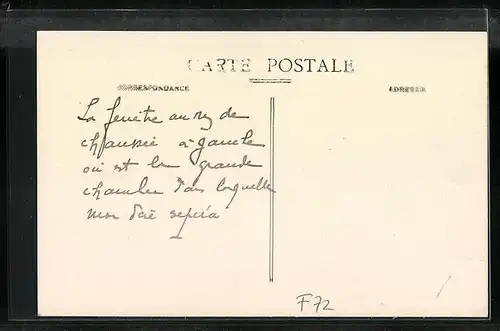 CARTE POSTALE
CORRESPONDANCE
ADRESSE
La fenêtre au rez de
chaussée à gauche
où est la grande
chambre dans laquelle
mon
F72